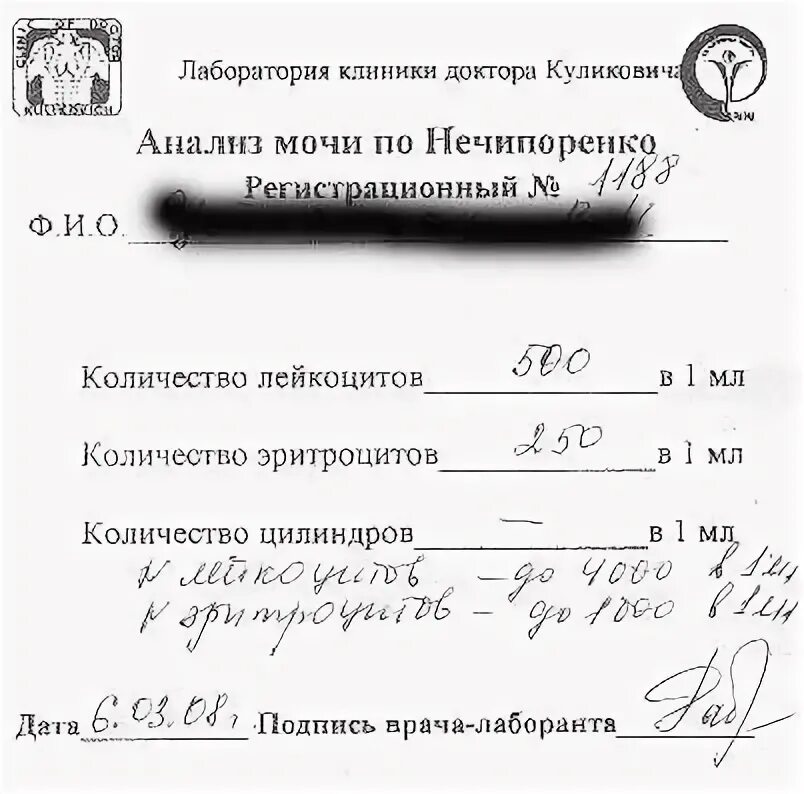 Лаборатория клиники доктора Куликовича
Анализ мочи по Нечипоренко
Регистрационный № 1188
Ф.И.О.
Количество лейкоцитов 500 в 1 мл
Количество эритроцитов 250 в 1 мл
Количество цилиндров — в 1 мл
N лейкоцитов – до 4000 в 1 мл
N эритроцитов – до 1000 в 1 мл
Дата 6.03.08г Подпись врача-лаборанта